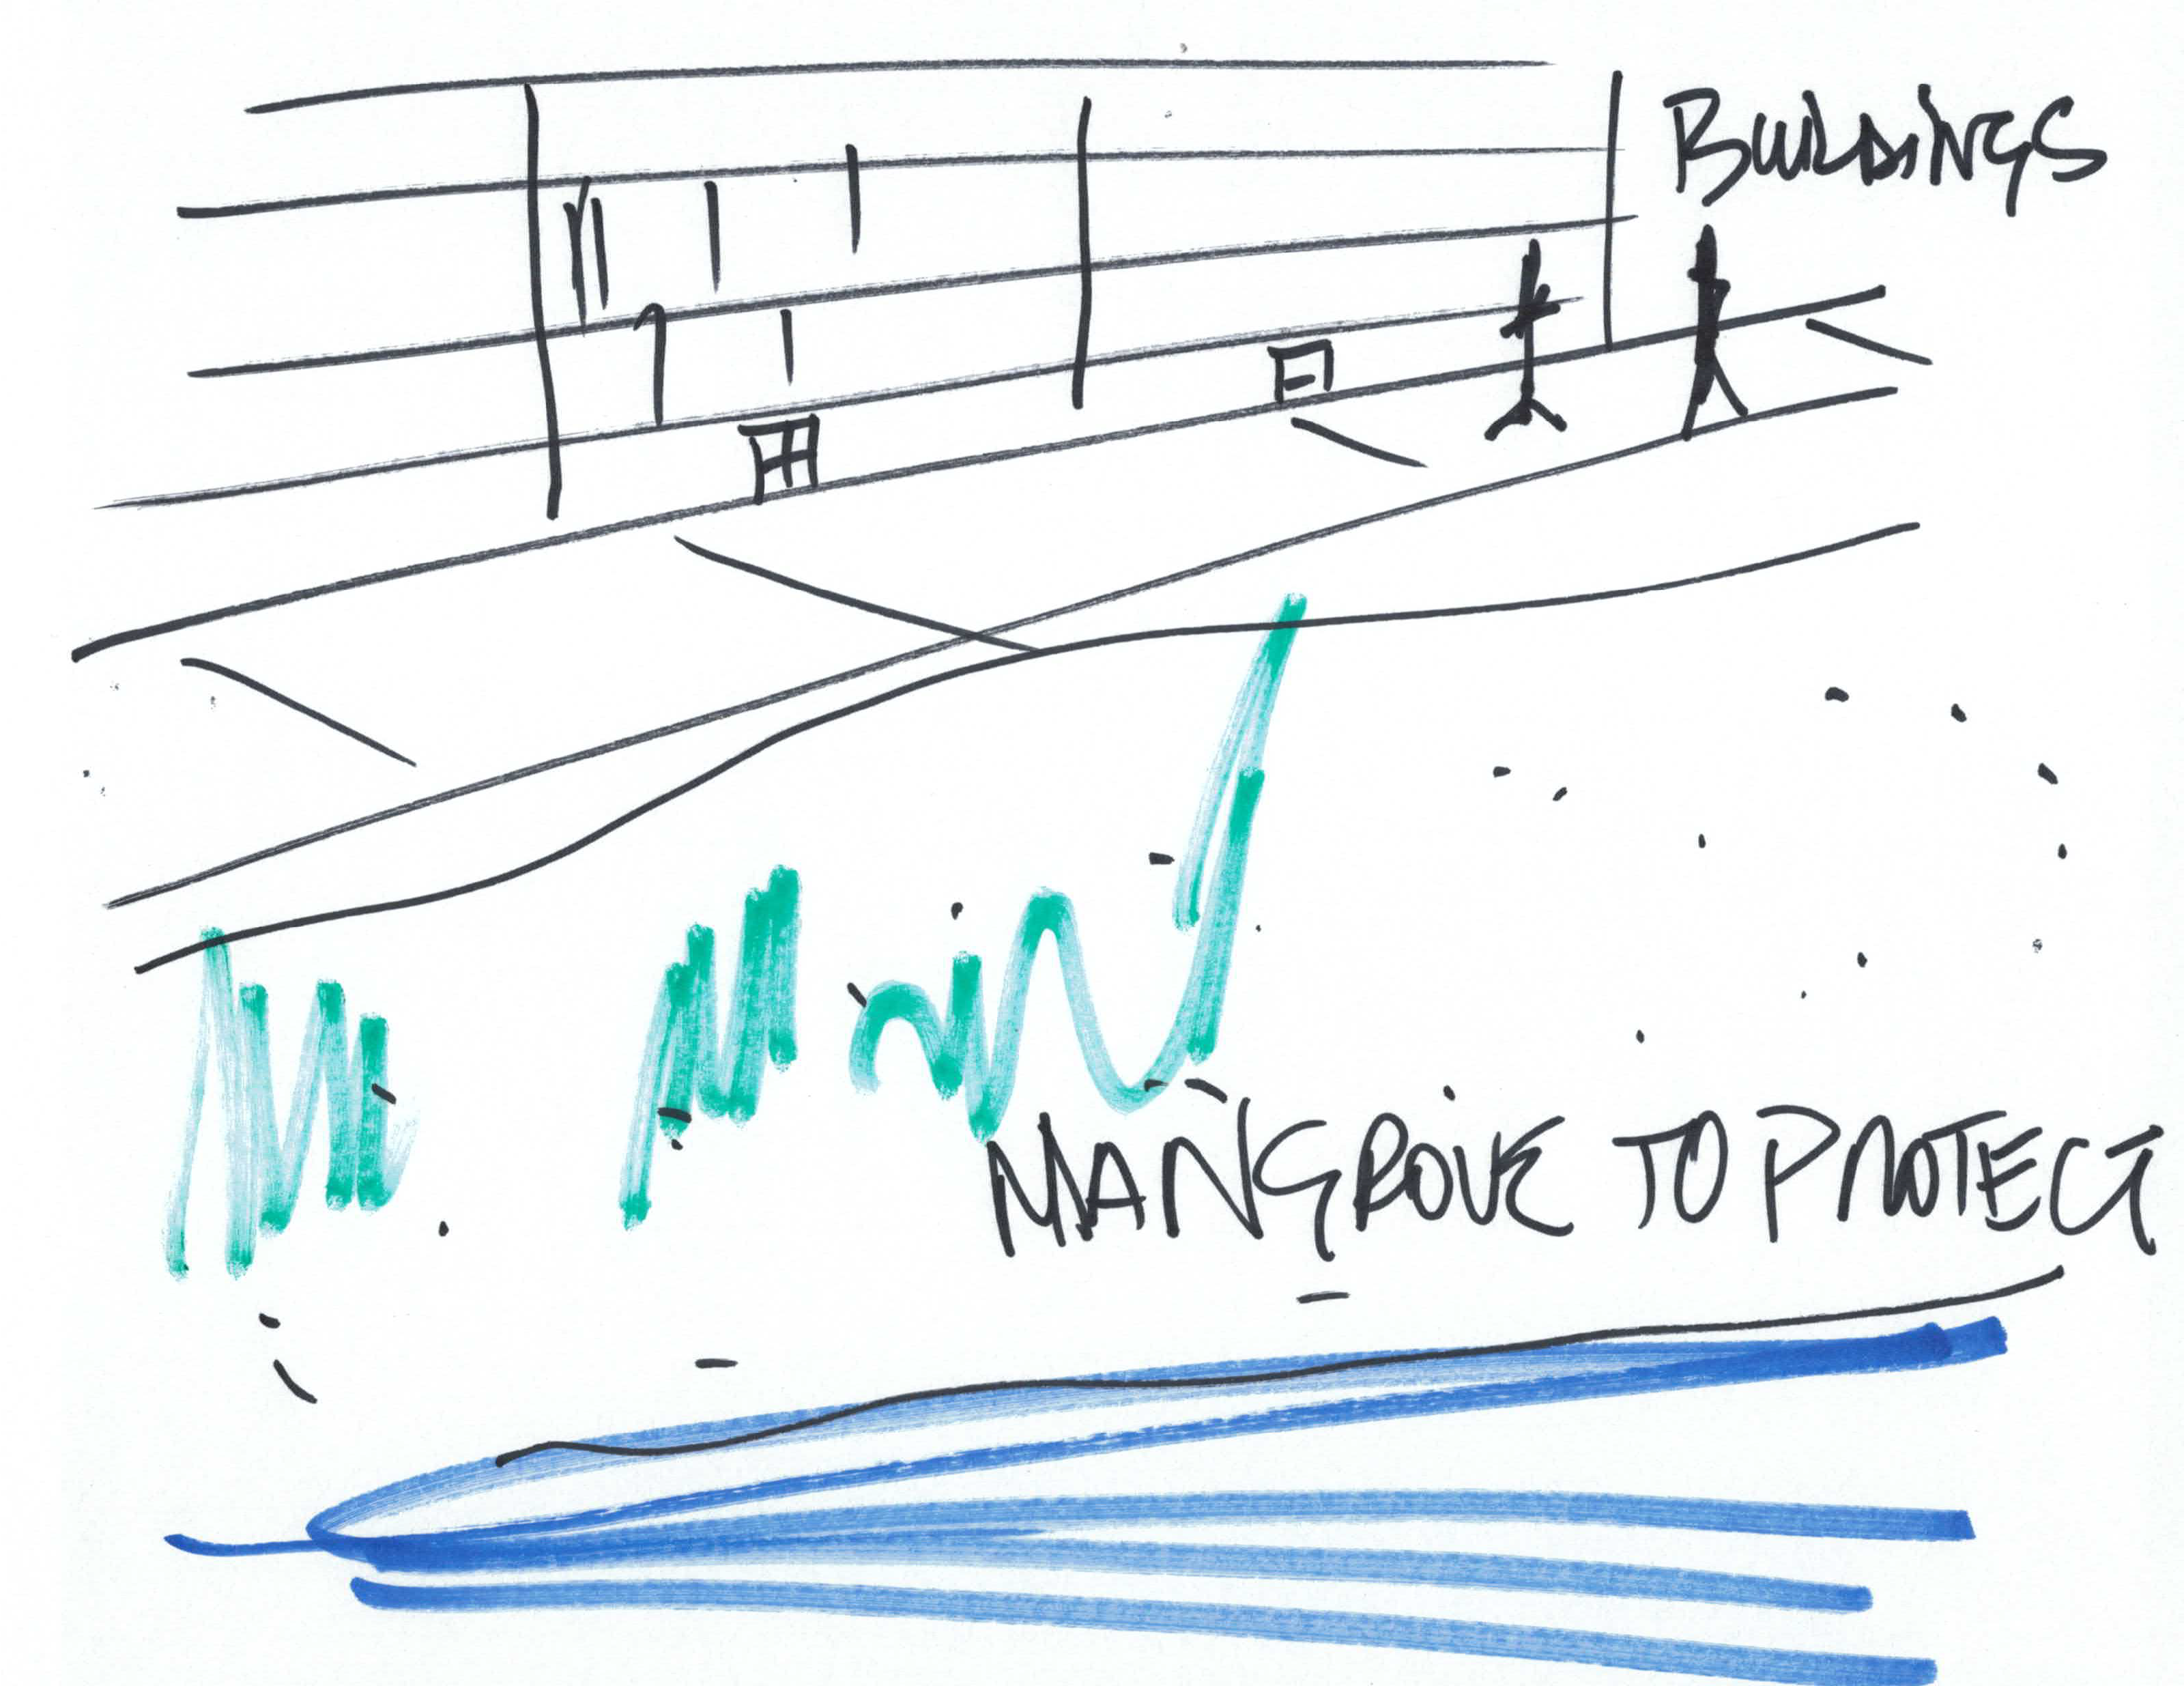 BUILDINGS
MANGROVE TO PROTECT